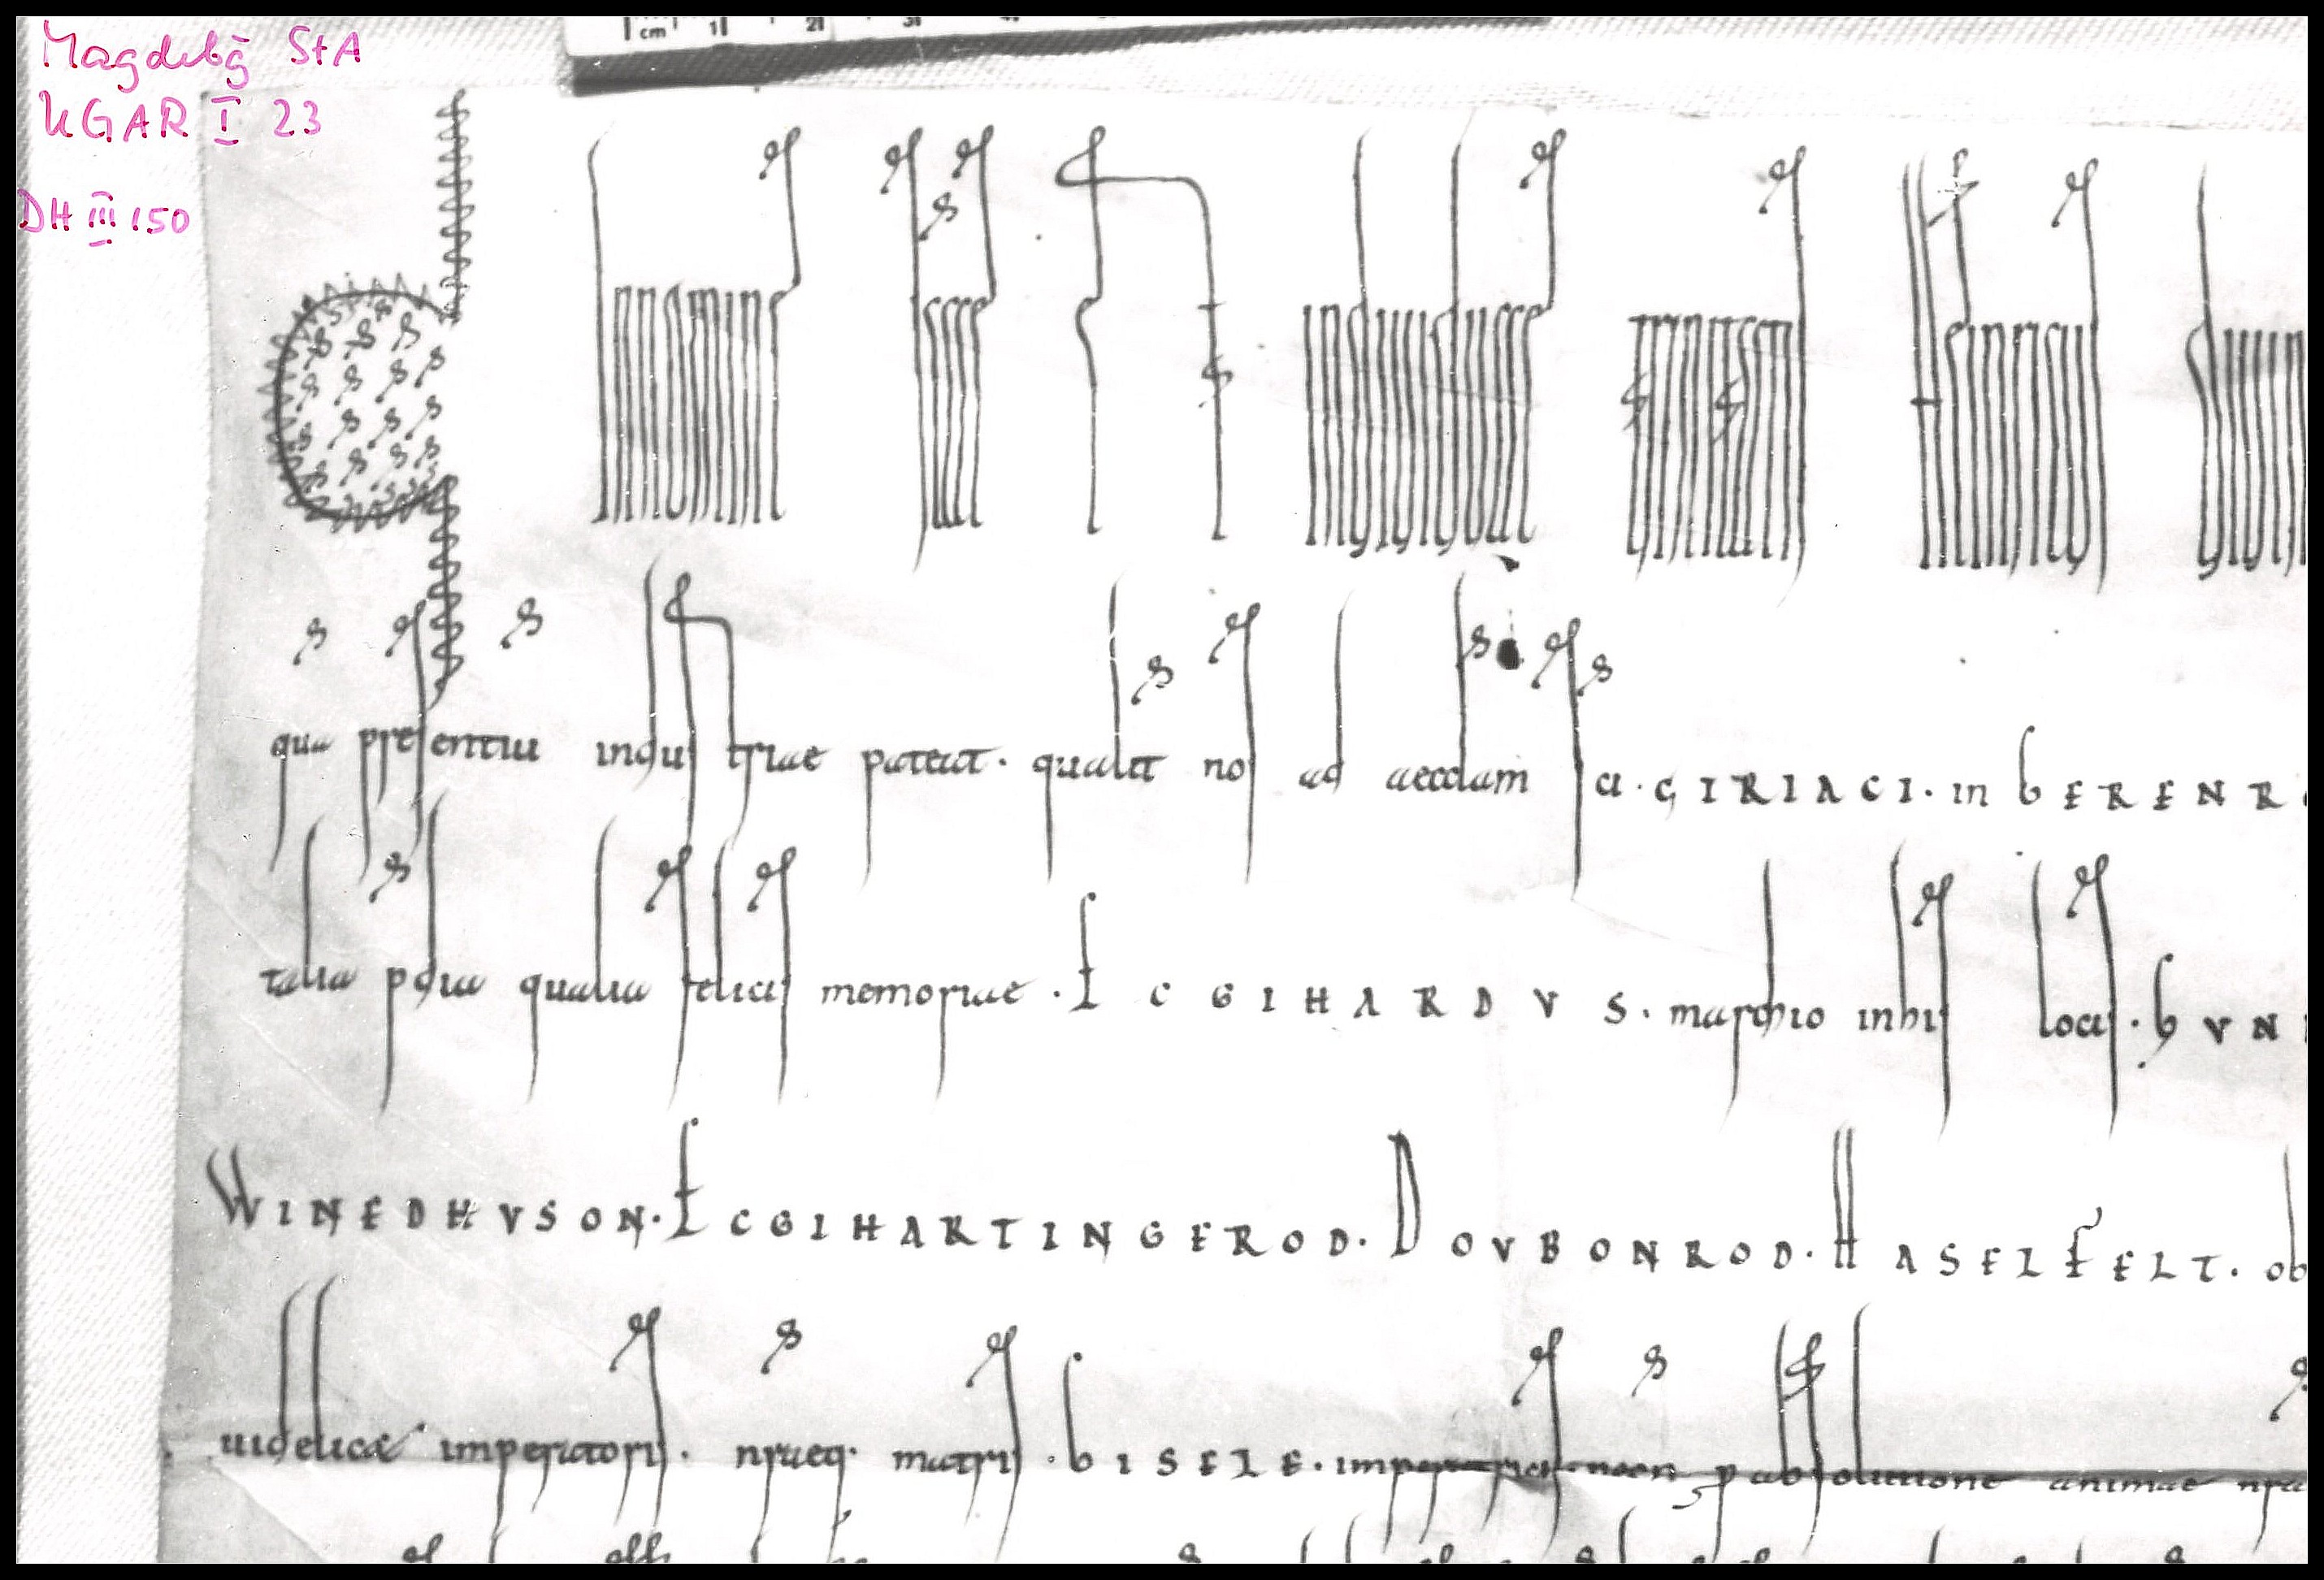 cm 1 2 3
Magdebg StA
UGAR I 23
DH III 150
In nomine sanctae et indiuiduae trinitatis Heinricus diuin
qua presentiu industriae pateat. qualit nos ad aecclam sci. CIRIACI. in bERENR
talia pdia qualia felicis memoriae. ECGIHARDVS. marchio in his locis. bVN
WINEDHVSON. ECGIHARTINGEROD. DOVBONROD. HASELFELT. ob
uidelicet imperatoris. nraeq. matris. bISELE. imperatricis necn p absolutione animae nra